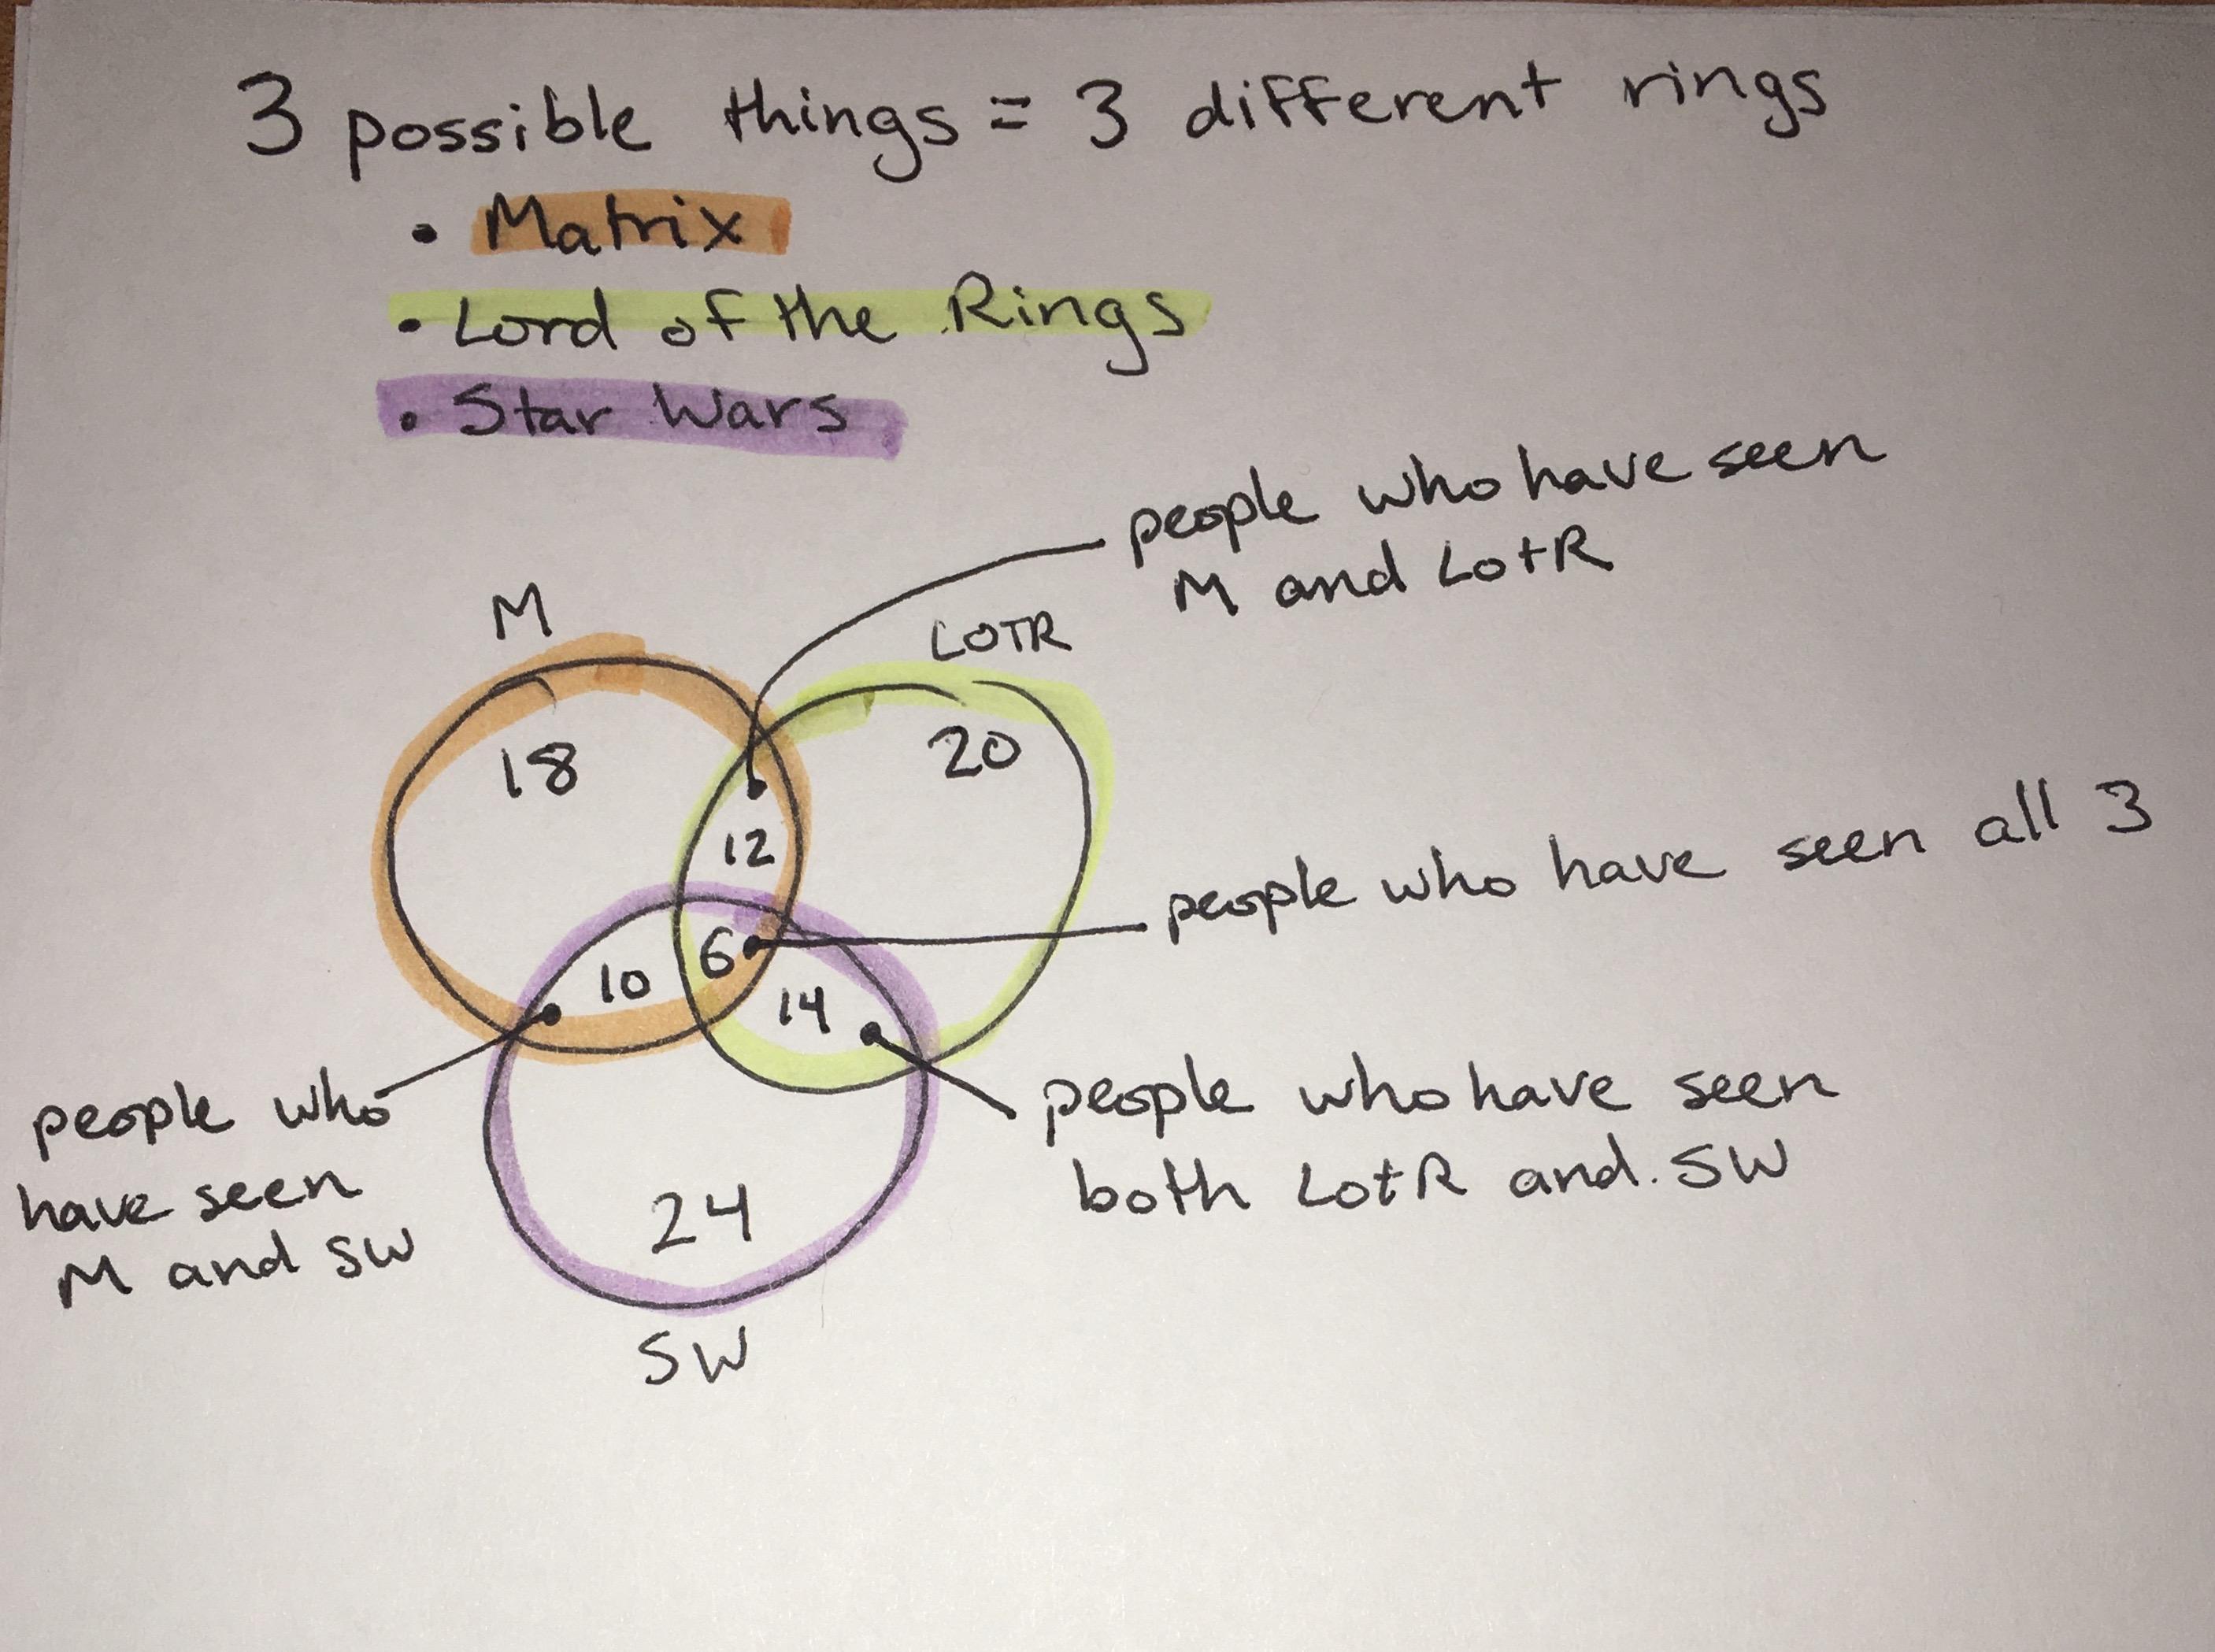 3 possible things = 3 different rings
• Matrix
• Lord of the Rings
• Star Wars
people who have seen
M and LotR
M
LOTR
18
20
12
people who have seen all 3
6
10
14
people who
have seen
M and SW
people who have seen
both LotR and. SW
24
SW